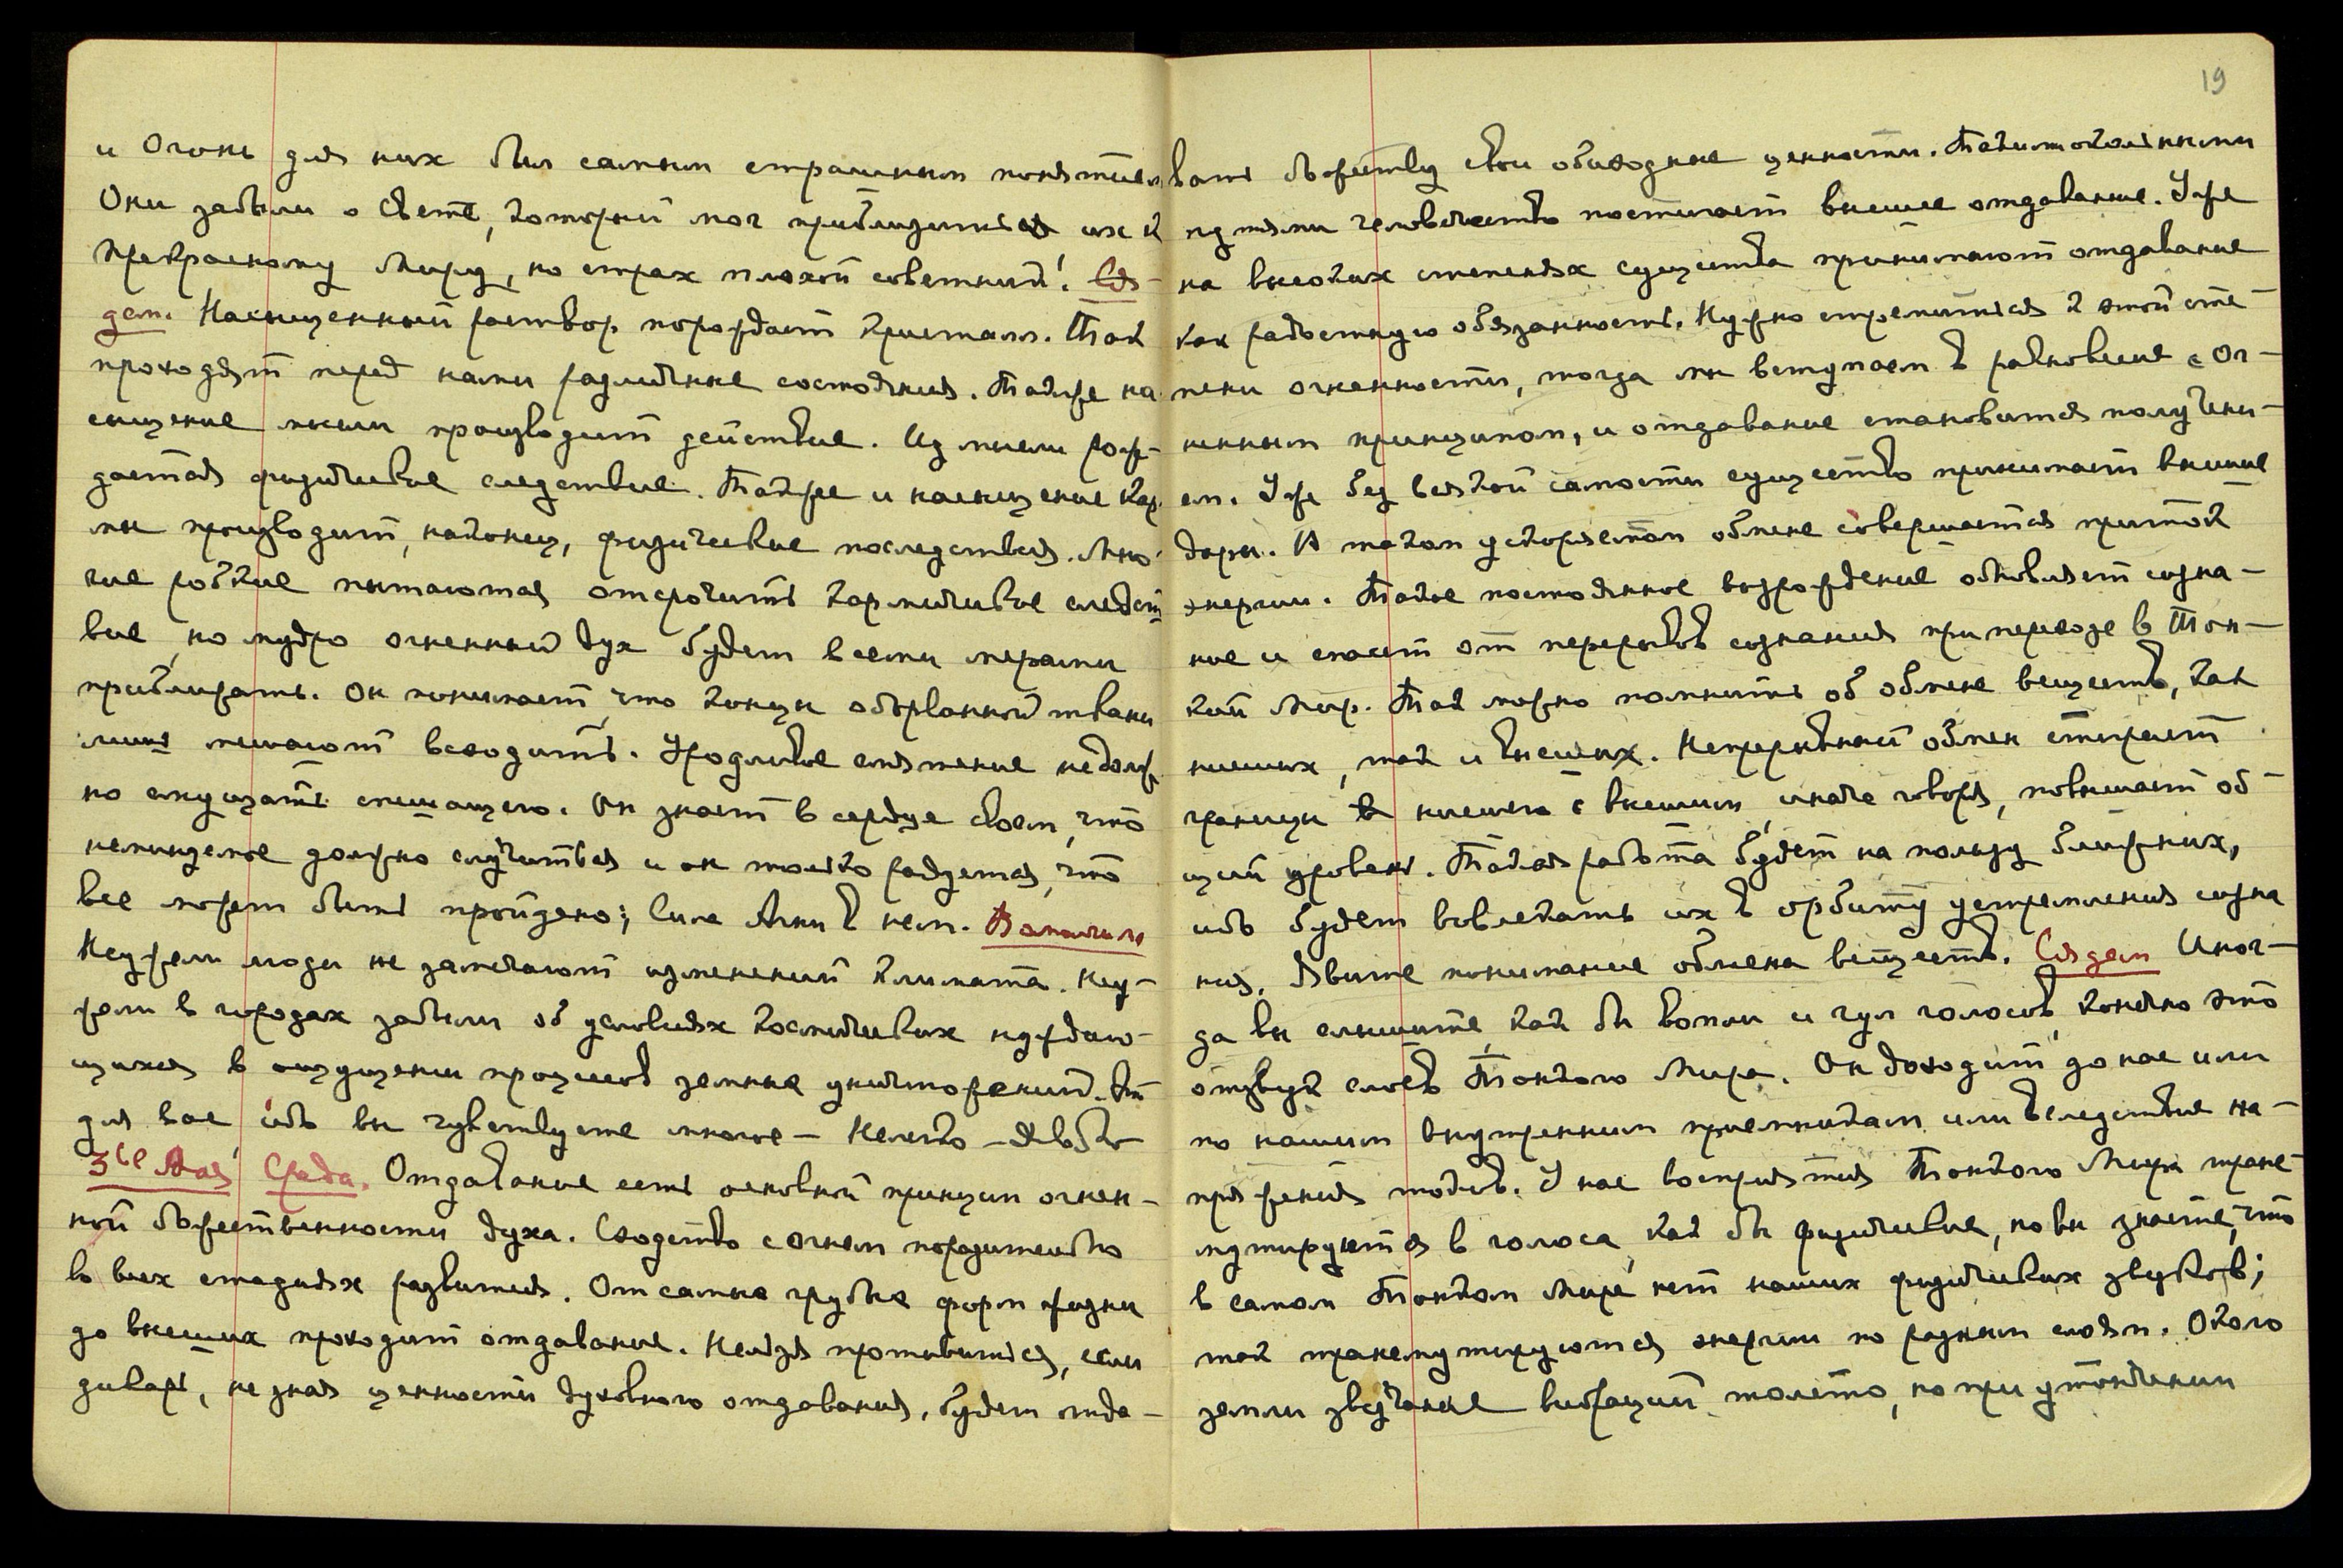 и Огонь для них был самым страшным понятием
Они забыли о Свете, который мог приблизить их к
прекрасному Миру, но страх плохой советник! Ся-
дем. Насыщенный раствор порождает кристалл. Так
проходят перед нами различные состояния. Также на
сыщение мысли производит действие. Из мысли рож-
дается физическое следствие. Также и насыщение Кар
мы производит, наконец, физические последствия. Мно-
гие робкие пытаются отсрочить кармическое следст
вие, но мудро огненный дух будет всеми мерами
приближать. Он понимает, что концы оборванной ткани
лишь мешают восходить. Уродливое смятение недолж
но смущать спешащего. Он знает в сердце своем, что
неминуемое должно случиться и он только радуется, что
все может быть пройдено; Сила Агни в нем.
Неужели люди не замечают изменений климата. Неу-
жели в городах забыли об условиях космических нуждаю-
щихся в ощущении процессов земных уничтожений.
для вас, ибо вы чувствуете многое — Нелегко — Довольно
3ье Мая, Среда. Отдавание есть основной принцип огнен-
ной божественности духа. Сходство с огнем поразительно
во всех стадиях развития. От самых грубых форм жизни
до высших проходит отдавание. Нельзя противиться, если
дикарь, не зная ценности духовного отдавания, будет отда-
19
вать божеству свои обиходные ценности. Такими окольными
путями человечество постигает высшее отдавание. Уже
на высоких степенях существа принимают отдавание
как радостную обязанность. Нужно стремиться к этой сте-
пени огненности, тогда мы вступаем в равновесие с Ог-
ненным принципом, и отдавание становится получени-
ем. Уже без всякой самости существо принимает высшие
дары. В таком ускоряемом обмене совершается приток
энергии. Такое постоянное возрождение обновляет созна-
ние и спасает от перерывов сознания при переходе в Тон-
кий Мир. Так можно помнить об обмене веществ, как
низших, так и высших. Непрерывный обмен стирает
границы низшего с высшим, иначе говоря, повышает об-
щий уровень. Такая работа будет на пользу ближних,
ибо будет вовлекать их в орбиту устремления созна
ния. Явите понимание обмена веществ. Сядем Иног-
да вы слышите как бы вопли и гул голосов, конечно это
отзвук слоев Тонкого Мира. Он доходит до нас или
по нашим внутренним приемникам или вследствие на-
пряжения токов. У нас восприятия Тонкого Мира транс
мутируются в голоса, как бы физические, но вы знаете, что
в самом Тонком Мире нет наших физических звуков;
так трансмутируются энергии по разным слоям. Около
земли звучание вибраций, но при утончении